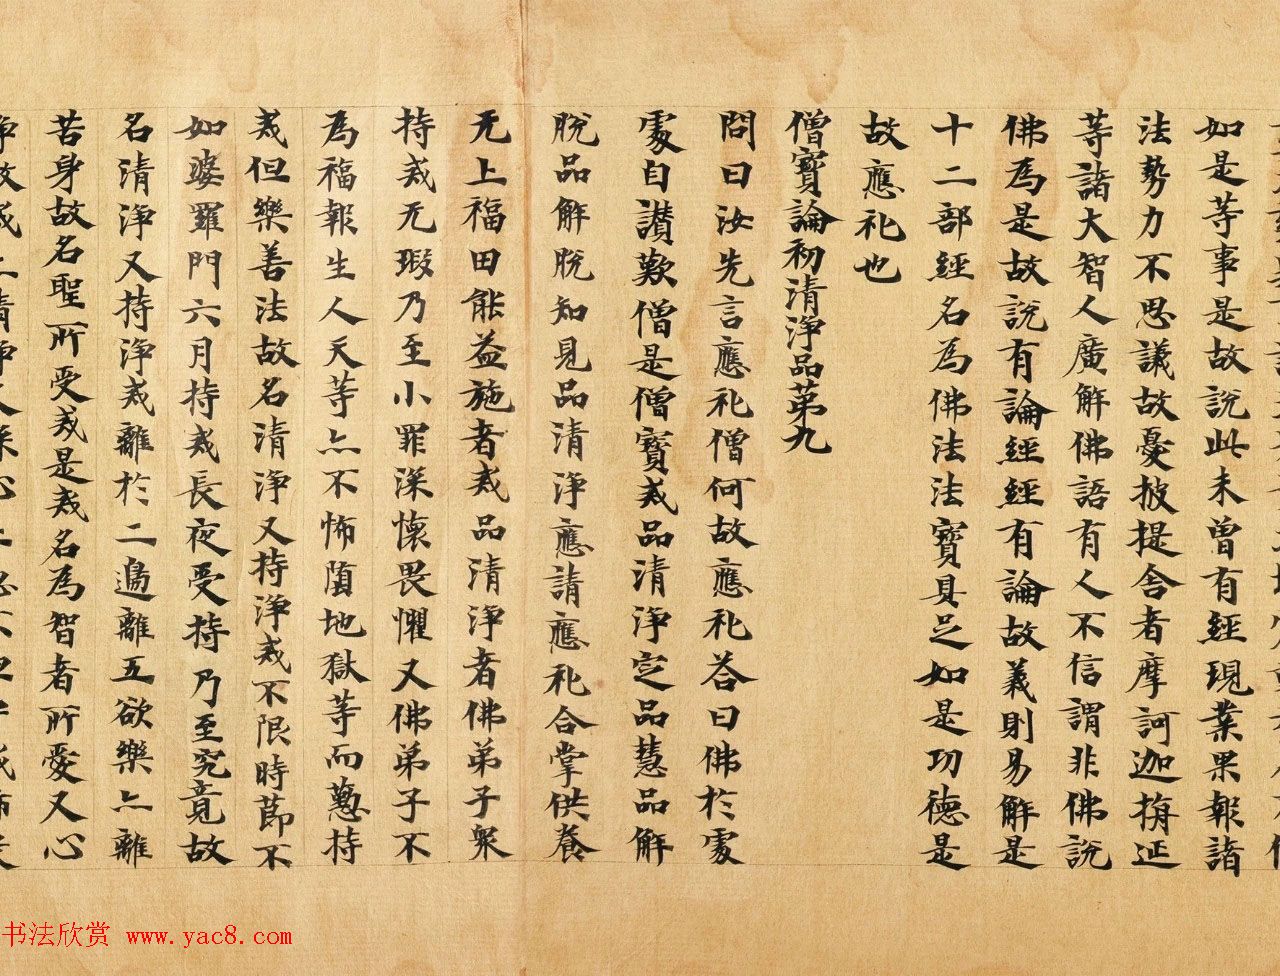 如是等事是故說此未曾有經現業果報諸
法勢力不思議故憂披提舍者摩訶迦旃延
等諸大智人廣解佛語有人不信謂非佛說
佛為是故說有論經經有論故義則易解是
十二部經名為佛法法寶具足如是功德是
故應礼也
僧寶論初清淨品第九
問曰汝先言應礼僧何故應礼答曰佛於處
處自讃歎僧是僧寶戒品清淨定品慧品解
脫品解脫知見品清淨應請應礼合掌供養
无上福田能益施者戒品清淨者佛弟子眾
持戒无瑕乃至小罪深懷畏懼又佛弟子不
為福報生人天等亦不怖墮地獄等而懃持
戒但樂善法故名清淨又持淨戒不限時節不
如婆羅門六月持戒長夜受持乃至究竟故
名清淨又持淨戒離於二邊離五欲樂亦離
苦身故名聖所受戒是戒名為智者所愛又心
书法欣赏 www.yac8.com